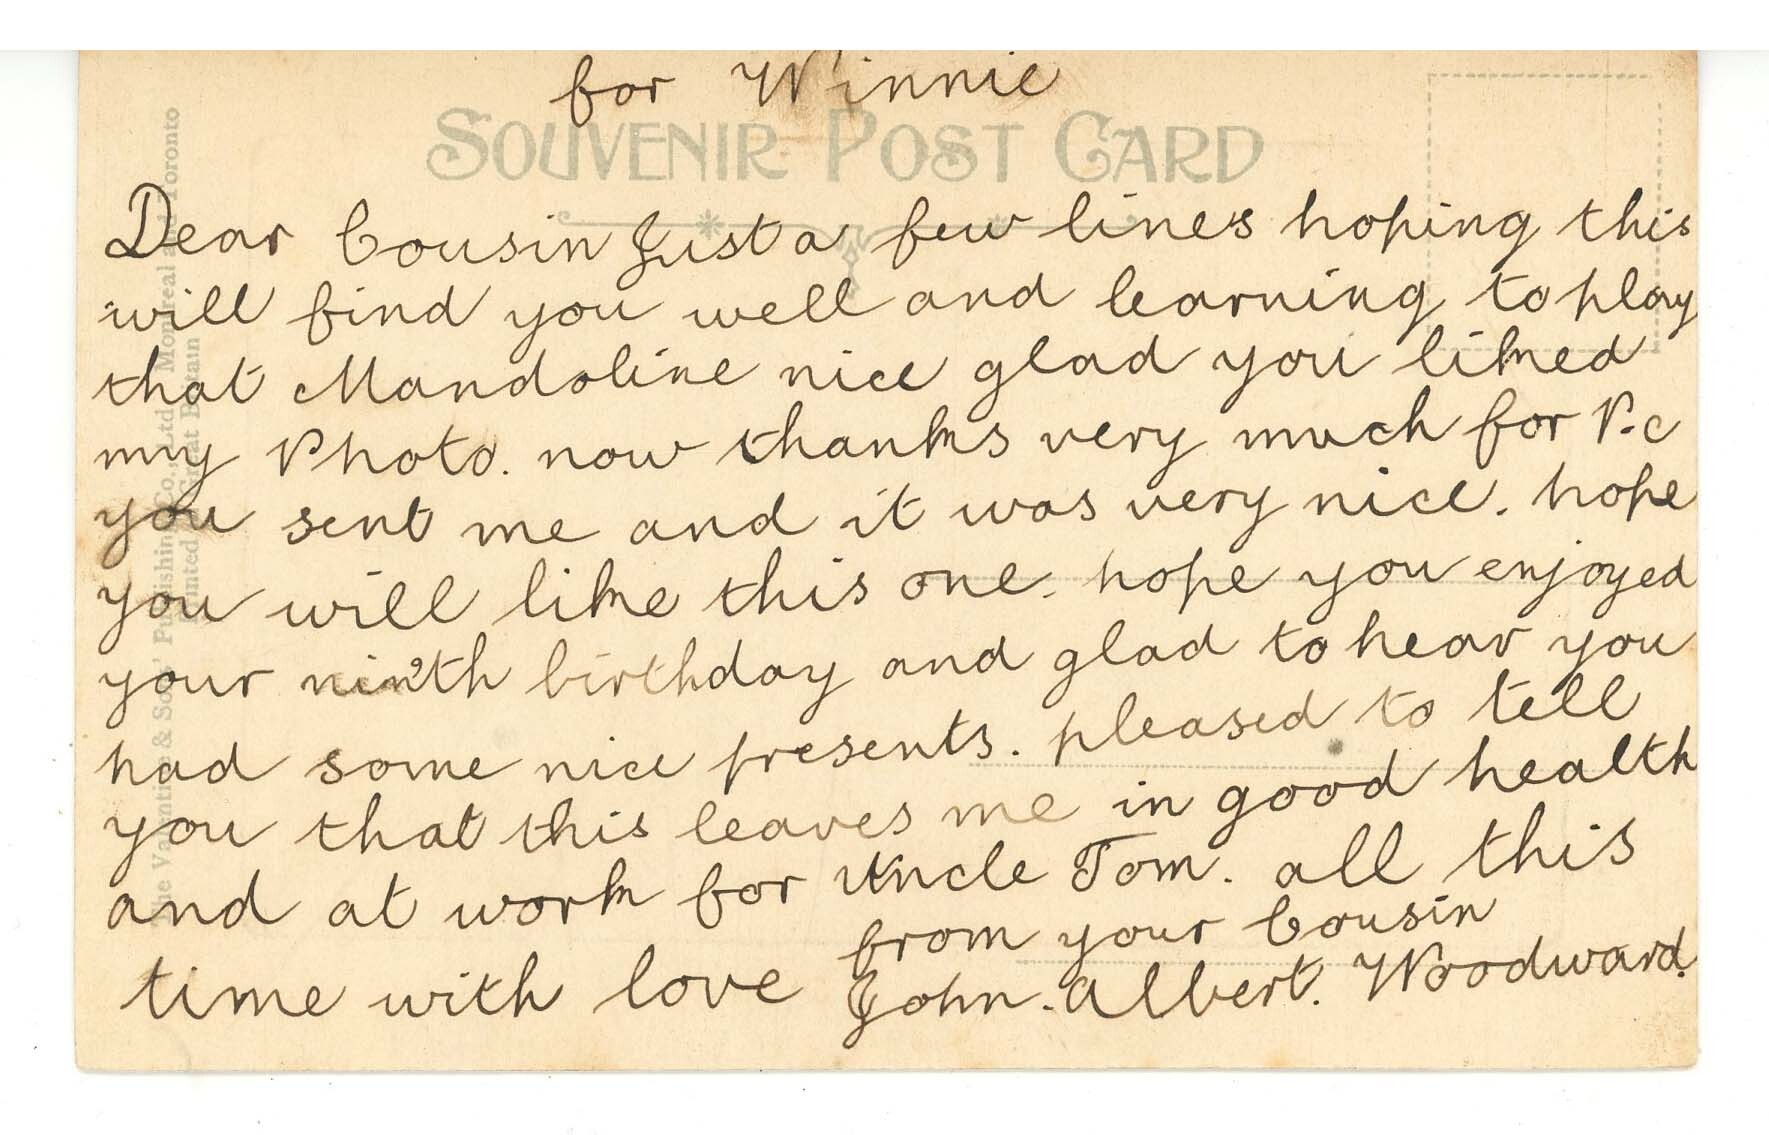 for Winnie
SOUVENIR POST CARD
Dear Cousin Just a few lines hoping this
will find you well and learning to play
that Mandoline nice glad you liked
my Photo. now thanks very much for P.c
you sent me and it was very nice. hope
you will like this one. hope you enjoyed
your ninth birthday and glad to hear you
had some nice presents. pleased to tell
you that this leaves me in good health
and at work for Uncle Tom. all this
time with love from your Cousin
John. Albert. Woodward.
The Valentine & Sons' Publishing Co., Ltd Montreal and Toronto
Printed in Great Britain